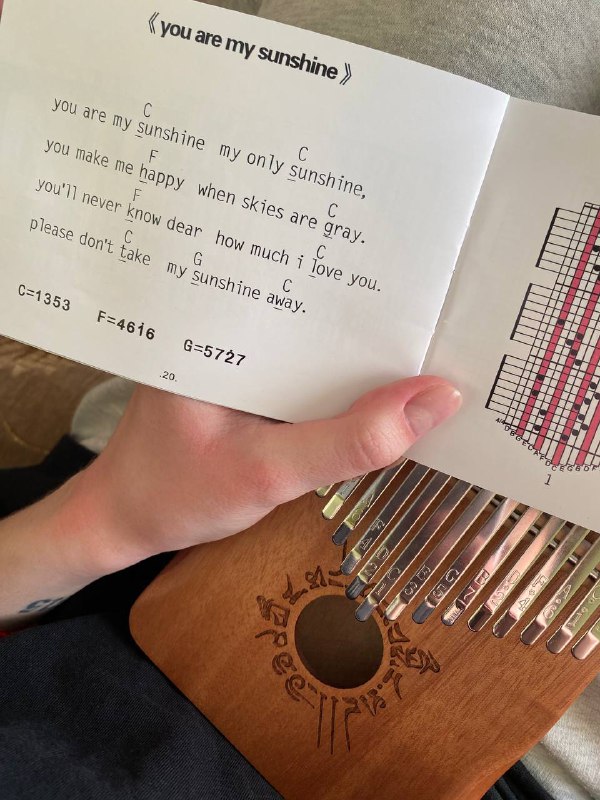 《you are my sunshine》
C C
you are my sunshine my only sunshine,
F C
you make me happy when skies are gray.
F C
you'll never know dear how much i love you.
C G C
please don't take my sunshine away.
C=1353 F=4616 G=5727
.20.
1